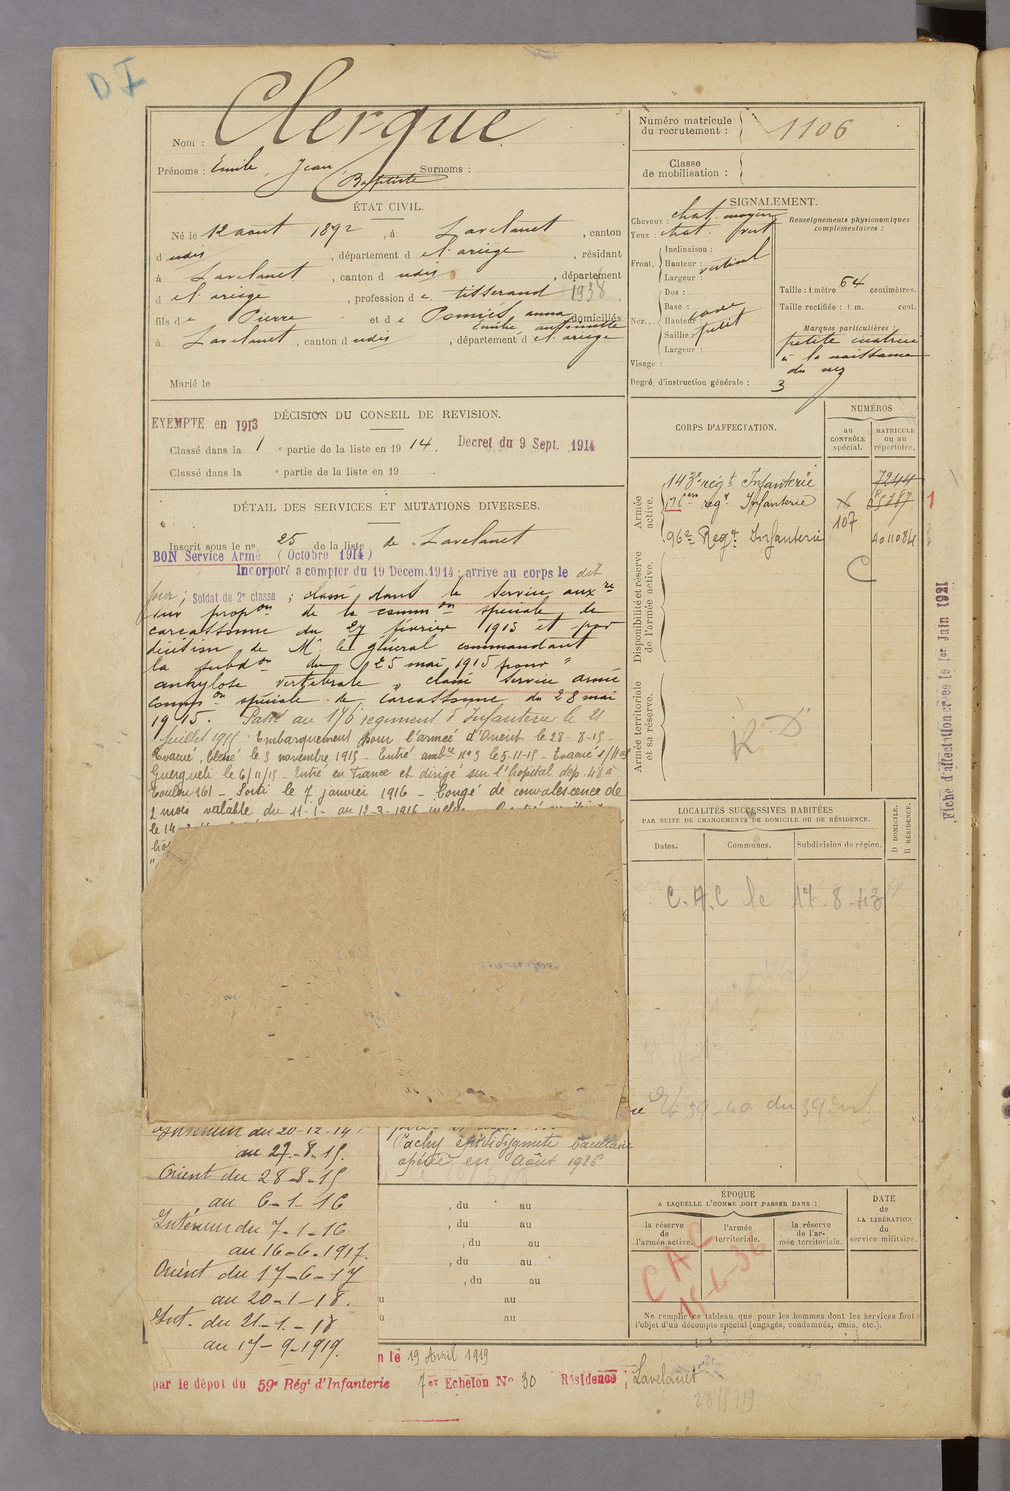 D I
Nom : Clergue
Prénoms : Emile, Jean Surnoms :
Baptiste
ÉTAT CIVIL.
Né le 12 aout 1892, à Lavelanet, canton
d udis, département de l'ariège, résidant
à Lavelanet, canton d udis, département
de l'ariège, profession de tisserand 1938
fils de Pierre et de Pomiès, anna domiciliés
Emilie, antoinette
à Lavelanet, canton d udis, département de l'ariège
Marié le
DÉCISION DU CONSEIL DE REVISION.
EXEMPTE en 1913
Classé dans la 1 e partie de la liste en 1914. Decret du 9 Sept. 1914
Classé dans la e partie de la liste en 19
DÉTAIL DES SERVICES ET MUTATIONS DIVERSES.
Inscrit sous le no 25 de la liste de Lavelanet
BON Service Armé (Octobre 1914)
Incorporé a compter du 19 Decem. 1914 ; arrive au corps le dit
jour ; Soldat de 2e classe ; classé dans le service auxre
sur propon de la common spéciale de
carcassonne du 27 février 1915 et par
décision de Mr le général commandant
la subdon du 25 mai 1915 pour "
ankylose vertébrale " classé service armé
comon spéciale de Carcassonne du 28 mai
1915. Passé au 176 régiment d'Infanterie le 21
Juillet 1915. Embarquement pour l'armée d'Orient le 28-8-15 -
Evacué, blessé le 3 novembre 1915 - Entré ambce No 3 le 5-11-15 - Evacué s/
Guergueli le 6/11/15 - Entré en France et dirigé sur l'hopital dép. 48 à
Toulon 161 - Sorti le 7 janvier 1916 - Congé de convalescence de
2 mois valable du 11-1- au 12-3-1916
le 14
Intérieur du 20-12-14
au 27-8-15.
Orient du 28-8-15
au 6-1-16
Intérieur du 7-1-16
au 16-6-1917.
Orient du 17-6-17
au 20-1-18.
Int. du 21-1-18
au 17-9-1919.
Pachy épididymite bacillaire
opérée en Août 1926
, du au
, du au
, du au
, du au
, du au
u au
u au
n le 19 Avril 1919
par le dépot du 59e Régt d'Infanterie 7er Echelon No 30 Résidence ; Lavelanet
28/1/19
Numéro matricule
du recrutement : 1106
Classe
de mobilisation :
SIGNALEMENT.
Cheveux : chat. moyen
Yeux : chat. vert
Front. Inclinaison :
Hauteur : vertical
Largeur :
Nez... Dos :
Base :
Hauteur :
Saillie : petit
Largeur :
Visage :
Degré d'instruction générale : 3
Renseignements physionomiques
complémentaires :
Taille : 1 mètre 64 centimètres.
Taille rectifiée : 1 m. cent.
Marques particulières :
petite cicatrice
à la naissance
du nez
CORPS D'AFFECTATION.
NUMÉROS
au
CONTRÔLE
spécial.
MATRICULE
ou au
répertoire.
Armée
active.
143e régt Infanterie 7244
176eme régt Infanterie 5387 1
107
96e Regt Infanterie 11084
C
Disponibilité et réserve
de l'armée active.
Armée territoriale
et sa réserve.
R D
Fiche d'affectation créée le 1er Juin 1921
LOCALITÉS SUCCESSIVES HABITÉES
PAR SUITE DE CHANGEMENTS DE DOMICILE OU DE RÉSIDENCE.
Dates.
Communes.
Subdivision de région.
D DOMICILE.
R RÉSIDENCE.
C.A.C le 17-8-43
39-40 du 59e
ÉPOQUE
A LAQUELLE L'HOMME DOIT PASSER DANS :
la réserve
de
l'armée active.
l'armée
territoriale.
la réserve
de l'ar-
mée territoriale.
DATE
de
LA LIBÉRATION
du
service militaire.
CAC
15-6-36
Ne remplir ce tableau que pour les hommes dont les services font
l'objet d'un décompte spécial (engagés, condamnés, omis, etc.).